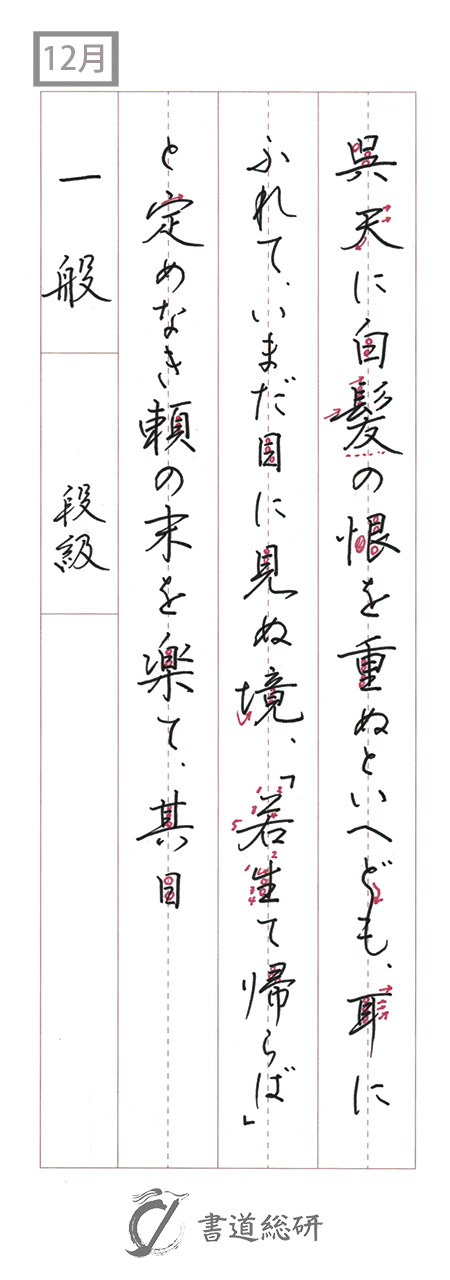 12月
呉天に白髪の恨を重ぬといへども、耳に
ふれて、いまだ目に見ぬ境、「若生て帰らば」
と定めなき頼の末を楽て、其日
一般
段級
書道総研